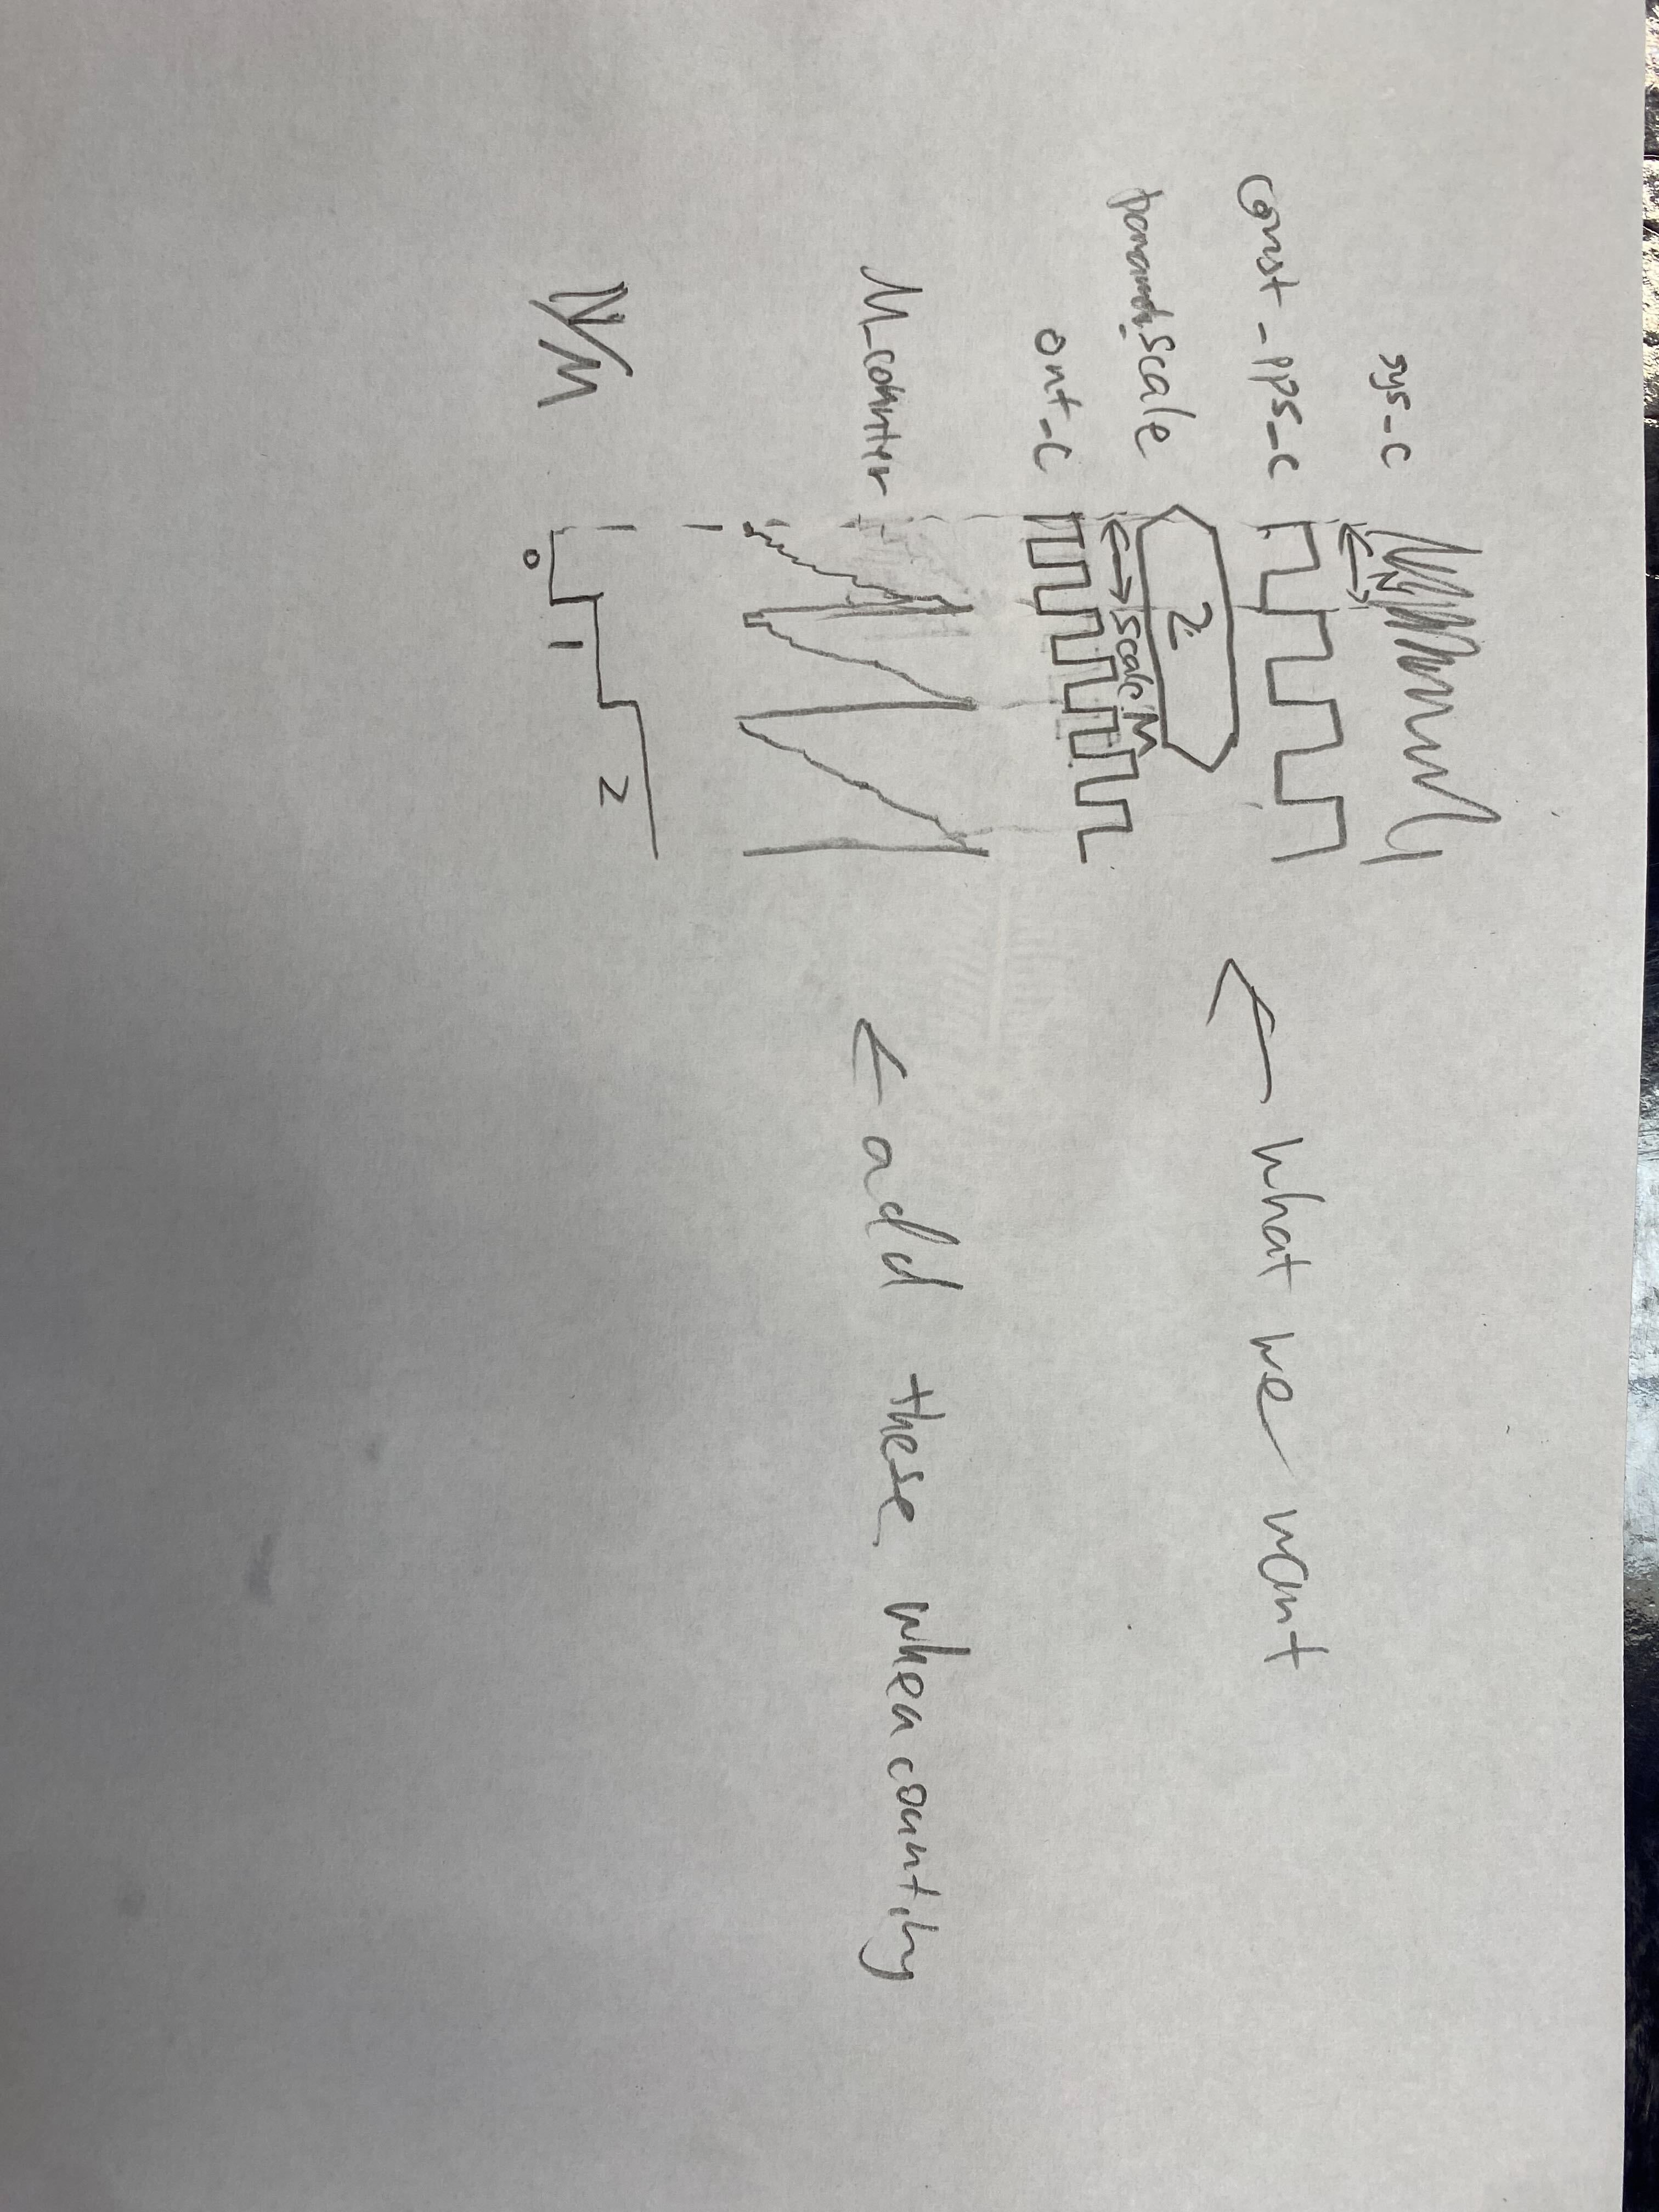 sys_c
N
const_pps_c
what we want
scale
2
scale M
out_c
M_counter
add these when counting
N/M
0
1
2